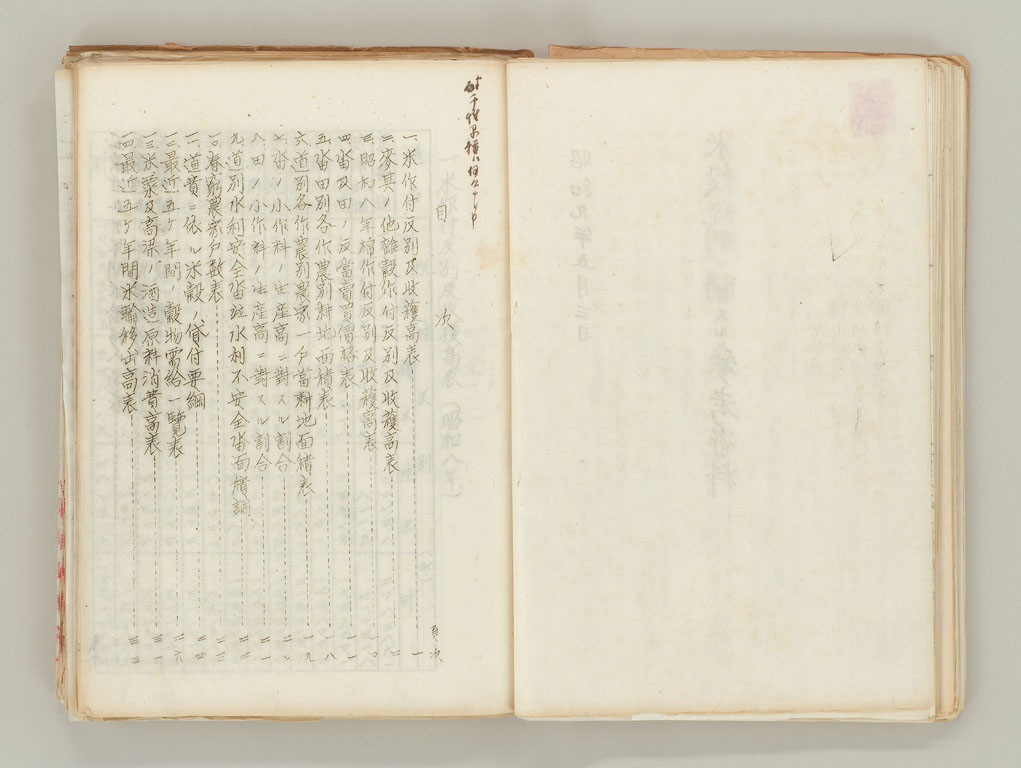 目次
頁次
一、米作付反別及收穫高表 一
二、麥其ノ他雜穀作付反別及收穫高表 二
三、昭和八年棉作付反別及收穫高表 一〇
四、畓及田ノ反當賣買價格表 一一
五、畓田別各作農別耕地面積表 一八
六、道別各作農別農家一戶當耕地面積表 一九
七、畓ノ小作料ノ生產高ニ對スル割合 二〇
八、田ノ小作料ノ生產高ニ對スル割合 二一
九、道別水利安全畓竝水利不安全畓面積調 二二
一〇、春窮農家戶數表 二三
一一、道費ニ依ル米穀ノ貸付要綱 二四
一二、最近五ケ年間ノ穀物需給一覽表 二六
一三、米粟及高粱ノ酒造原料消費高表 三一
一四、最近五ケ年間米輸移出高表 三三
昭和九年五月三日